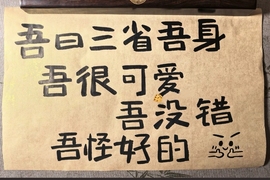 吾曰三省吾身
吾很可爱
吾没错
吾怪好的